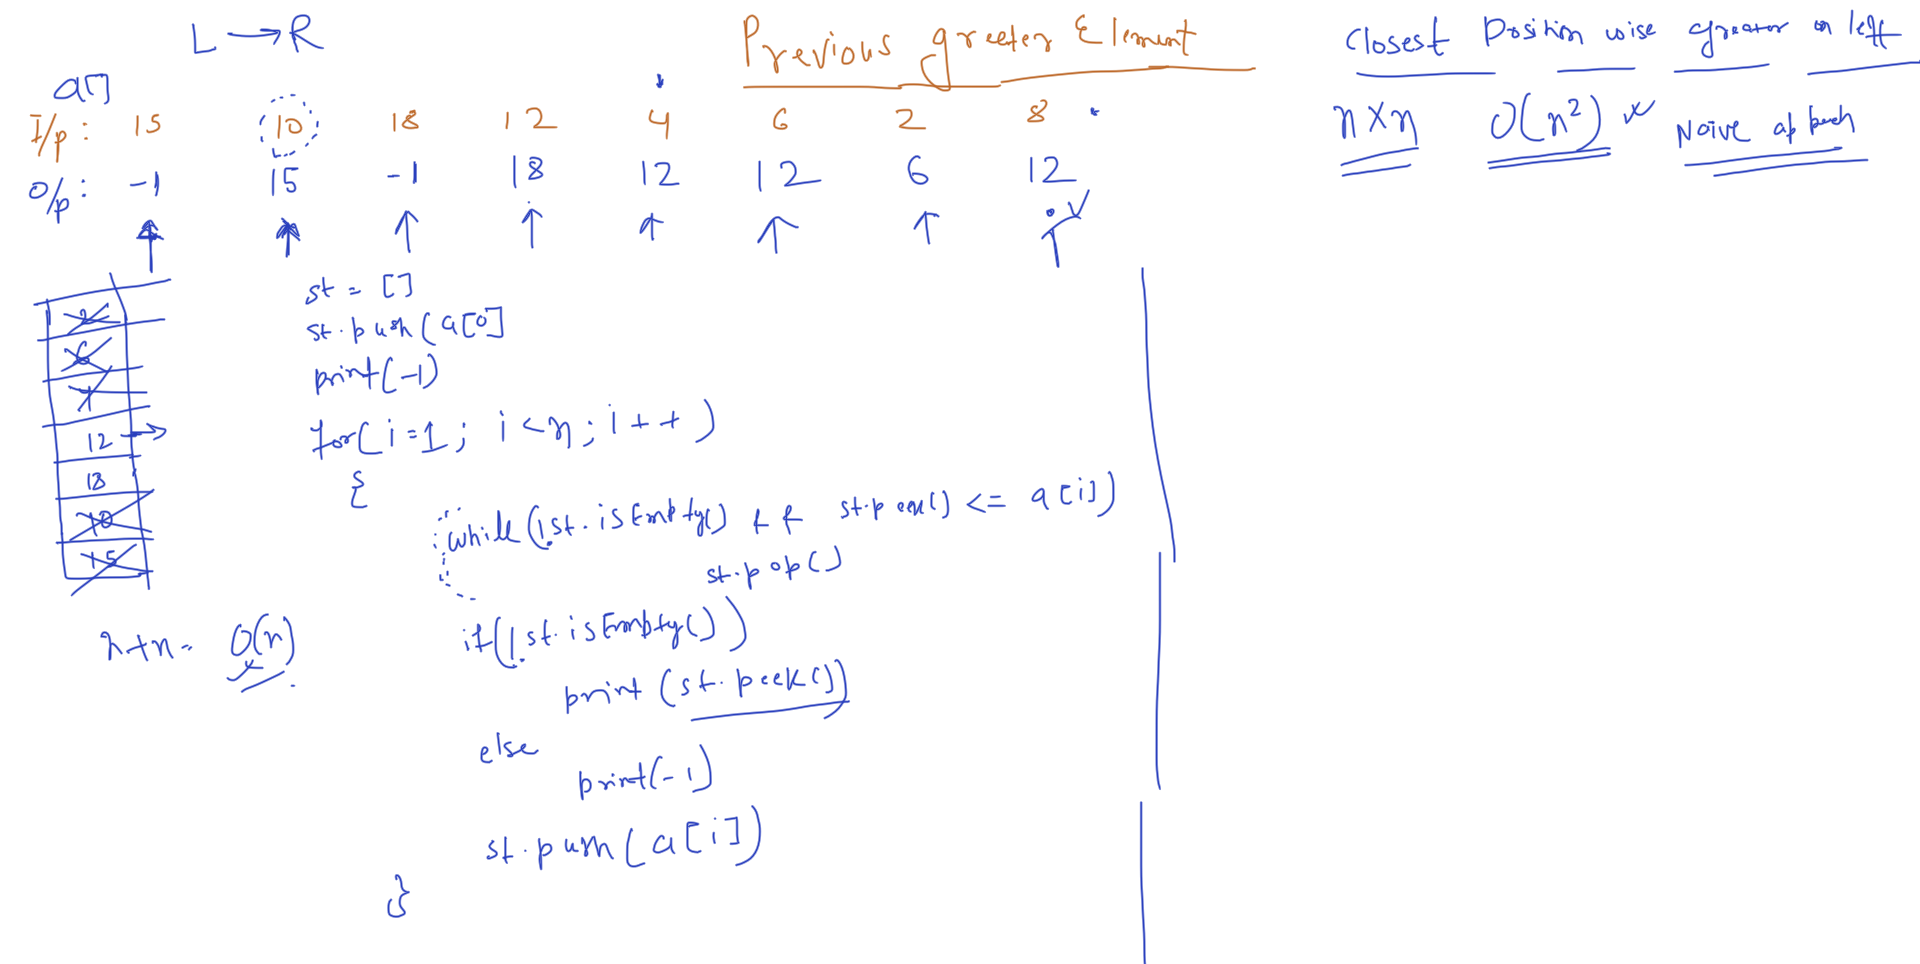 L → R
Previous greater Element
Closest Position wise greater on left
a[]
I/p: 15 10 18 12 4 6 2 8
n X n O(n²) Naive
O/p: -1 15 -1 18 12 12 6 12
st = []
st.push(a[0]
print(-1)
for(i=1; i<n; i++)
{
while(!st.isEmpty() && st.peek() <= a[i])
st.pop()
if(!st.isEmpty())
print(st.peek())
else
print(-1)
st.push(a[i])
}
2
6
12
18
10
15
n+n = O(n)